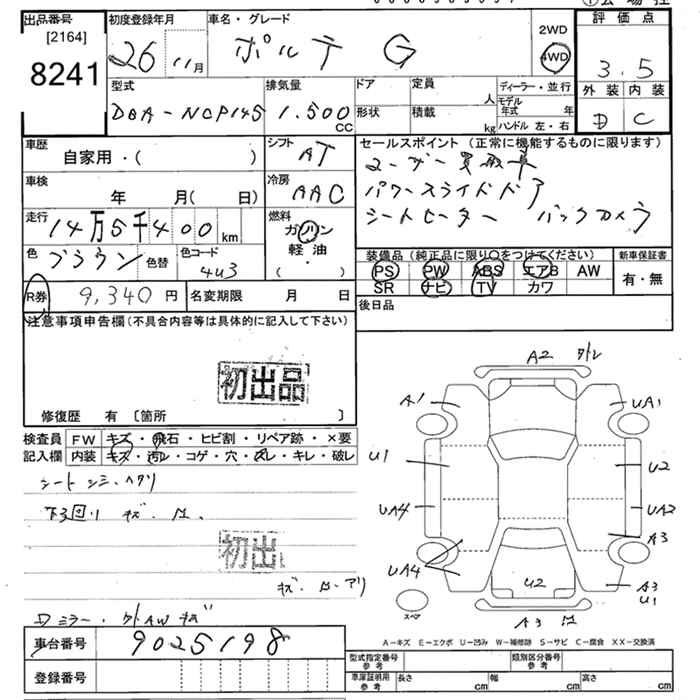 出品番号
[2164]
8241
初度登録年月
26 11月
車名・グレード
ポルテ G
2WD
4WD
評価点
3.5
外装 内装
D C
型式
DBA-NCP145
排気量
1.500
CC
ドア
形状
定員
人
積載
kg
ディーラー・並行
モデル年式 年
ハンドル 左・右
車歴
自家用・( )
シフト
AT
車検
年 月( 日)
冷房
AAC
走行
14万5千400 km
燃料
ガソリン
軽・油
( )
色
ブラウン
色替
色コード
4U3
R券
9,340 円
名変期限 月 日
セールスポイント (正常に機能するものに限ります)
ユーザー買取車
パワースライドドア
シートヒーター バックカメラ
装備品 (純正品に限り○をつけてください)
PS PW ABS エアB AW
SR ナビ TV カワ
新車保証書
有・無
後日品
注意事項申告欄 (不具合内容等は具体的に記入して下さい)
初出品
修復歴 有 〔箇所 〕
検査員
記入欄
FW キズ・飛石・ヒビ割・リペア跡・×要
内装 キズ・汚レ・コゲ・穴・スレ・キレ・破レ
シート シミ・ヘタリ
下回り キズ・
初出
Dミラー・ AW キズ
車台番号
9025198
登録番号
A2
A1
UA1
U1
U2
UA4
UA2
A3
UA4
U2
A3
U1
A3
スペア
A-キズ E-エクボ U-凹み W-補修跡 S-サビ C-腐食 XX-交換済
型式指定番号
参考
類別区分番号
参考
車庫証明用
参考
長さ cm
幅 cm
高さ cm